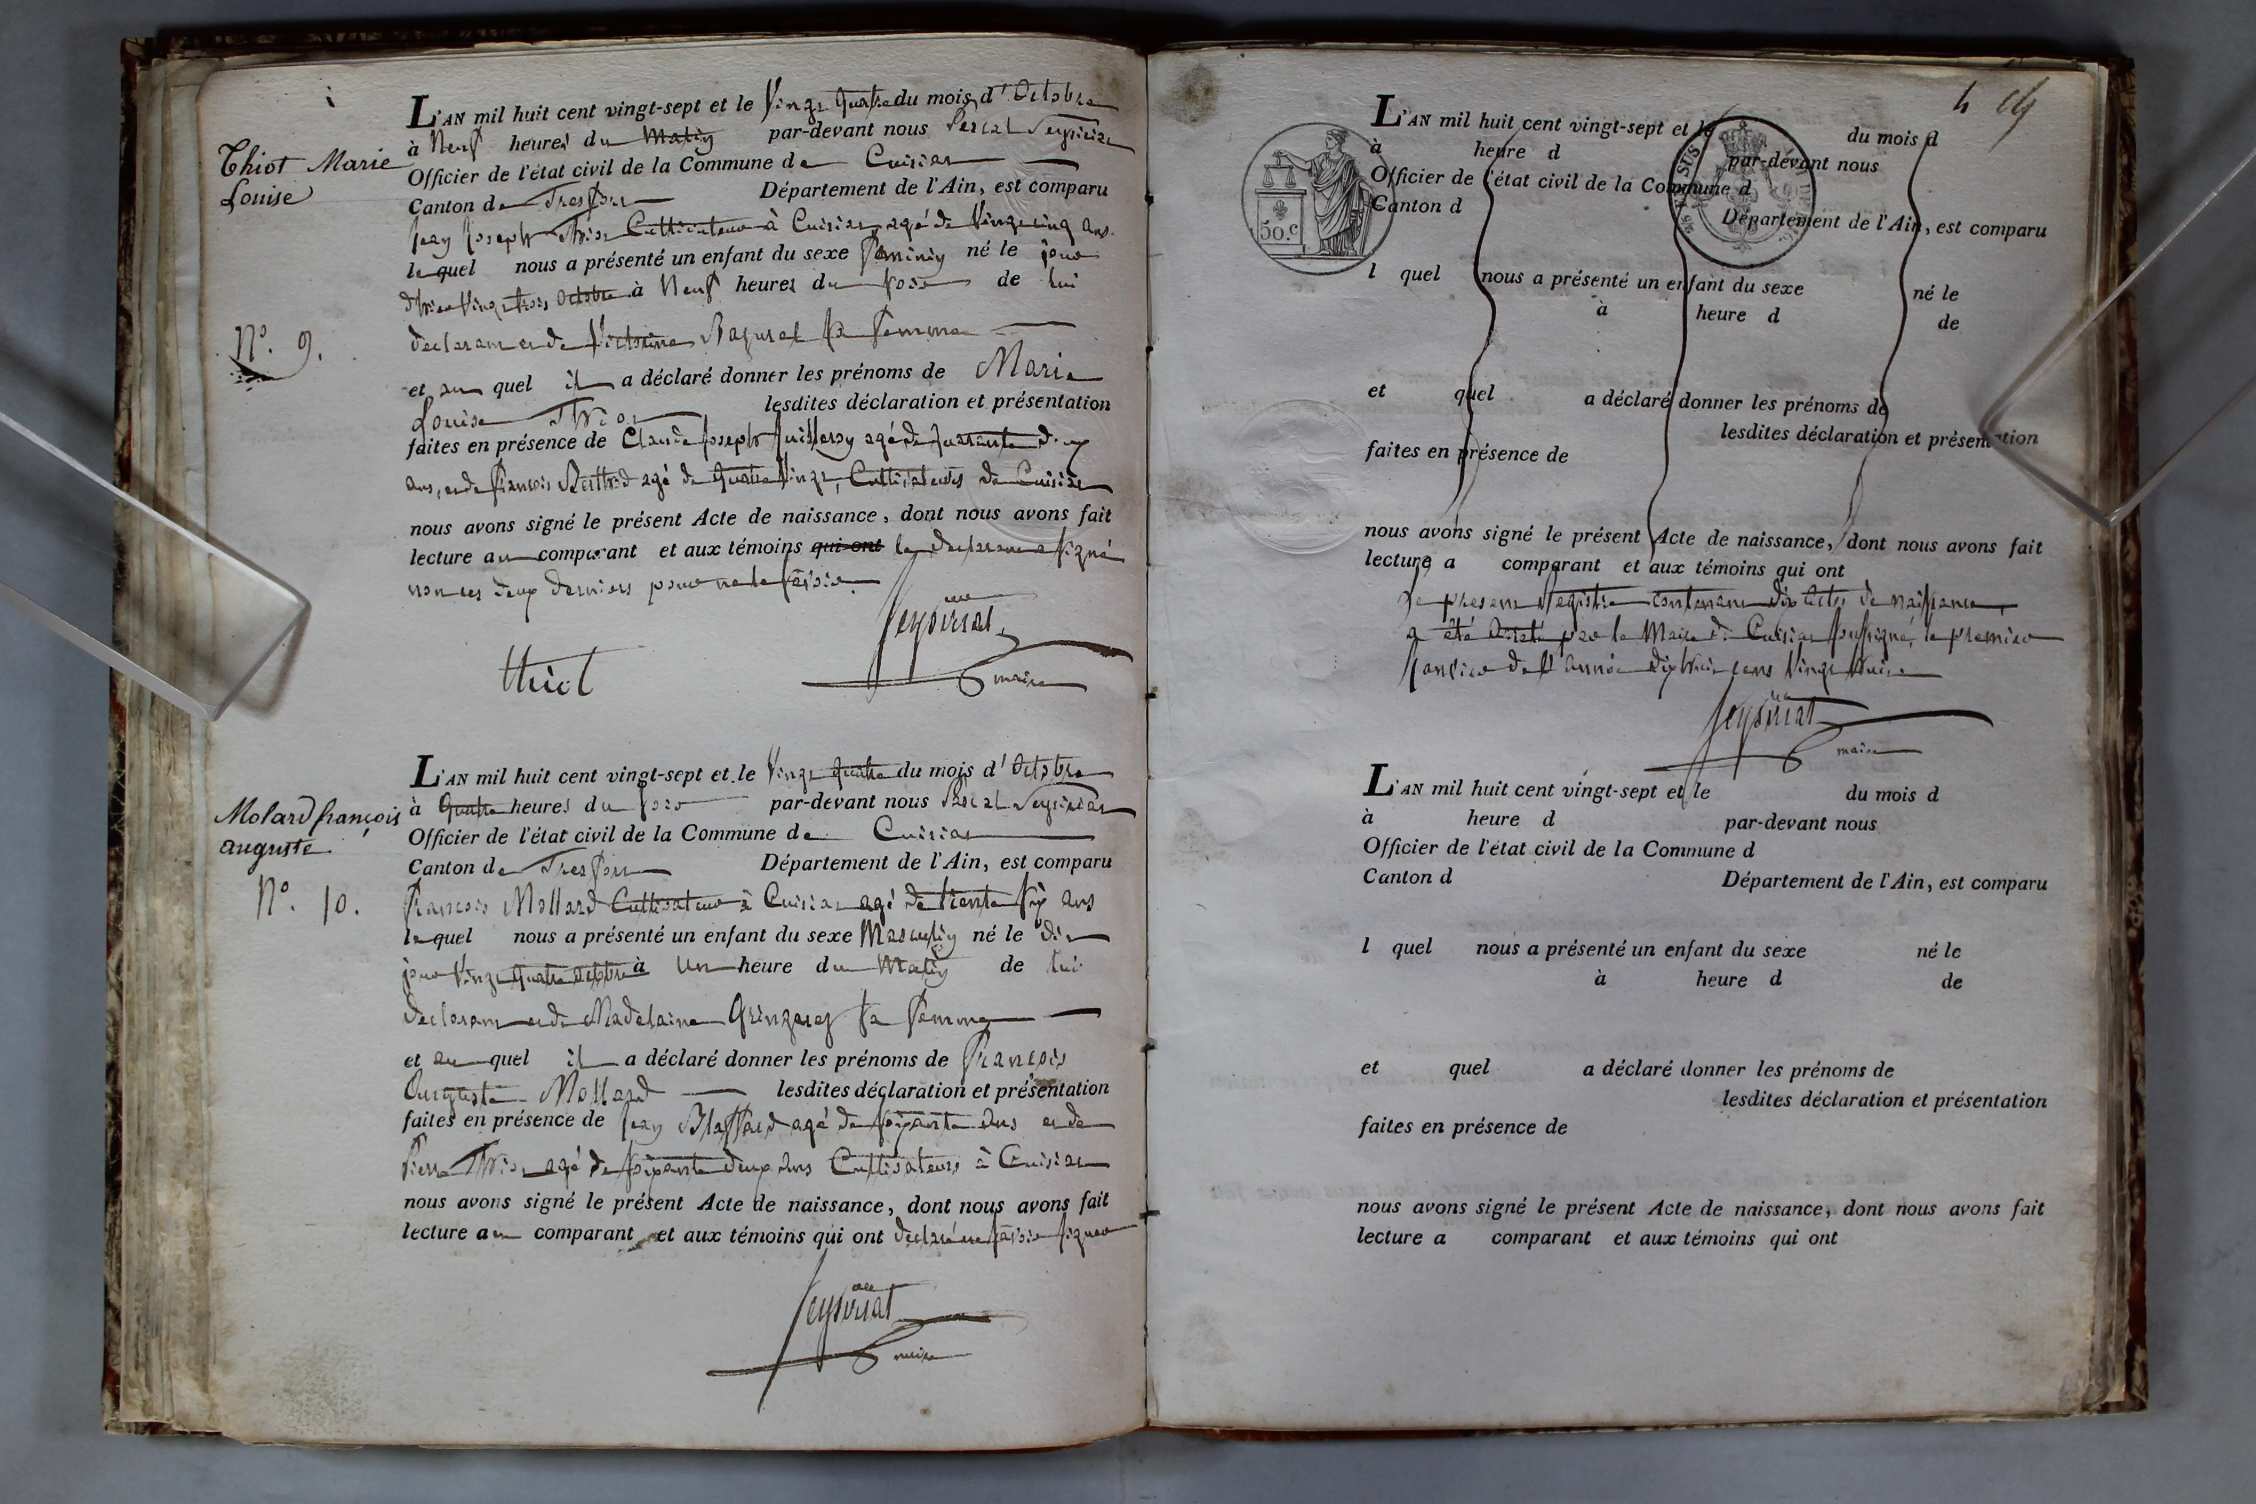 Thiot Marie
Louise
N.º 9.
L'AN mil huit cent vingt-sept et le Vingt quatre du mois d'Octobre
à Neuf heures du Matin par-devant nous Pascal Seyssiat
Officier de l'état civil de la Commune de Cuisiat
Canton de Treffort Département de l'Ain, est comparu
Jean Joseph Thiot Cultivateur à Cuisiat agé de Vingt cinq ans
lequel nous a présenté un enfant du sexe feminin né le jour
d'hier Vingt trois Octobre à Neuf heures du soir de lui
declarant et de Victorine sa femme
et au quel il a déclaré donner les prénoms de Marie
Louise Thiot lesdites déclaration et présentation
faites en présence de Claude Joseph agé de quarante deux
ans, et de françois agé de quatre Vingt, Cultivateurs de Cuisiat
nous avons signé le présent Acte de naissance, dont nous avons fait
lecture au comparant et aux témoins qui ont le declarant a signé
non ces deux derniers pour ne le savoir.
thiot
maire
Molard françois
auguste
N.º 10.
L'AN mil huit cent vingt-sept et le Vingt quatre du mois d'Octobre
à Quatre heures du soir par-devant nous Pascal Seyssiat
Officier de l'état civil de la Commune de Cuisiat
Canton de Treffort Département de l'Ain, est comparu
françois Mollard Cultivateur à Cuisiat agé de trente six ans
lequel nous a présenté un enfant du sexe Masculin né le dit
jour Vingt quatre octobre à Un heure du Matin de lui
declarant et de Madelaine sa femme
et au quel il a déclaré donner les prénoms de françois
Auguste Mollard lesdites déclaration et présentation
faites en présence de Jean agé de soixante Ans et de
Pierre Thiot agé de soixante deux Ans Cultivateurs à Cuisiat
nous avons signé le présent Acte de naissance, dont nous avons fait
lecture au comparant et aux témoins qui ont declaré ne savoir signer
maire
4
50.c
L'AN mil huit cent vingt-sept et le du mois d
à heure d par-devant nous
Officier de l'état civil de la Commune d
Canton d Département de l'Ain, est comparu
l quel nous a présenté un enfant du sexe né le
à heure d de
et quel a déclaré donner les prénoms de
lesdites déclaration et présentation
faites en présence de
nous avons signé le présent Acte de naissance, dont nous avons fait
lecture a comparant et aux témoins qui ont
Le present Registre contenant dix Actes de naissance,
a été par le Maire de Cuisiat soussigné, le premier
Janvier de l'année dix huit cent Vingt huit
maire
L'AN mil huit cent vingt-sept et le du mois d
à heure d par-devant nous
Officier de l'état civil de la Commune d
Canton d Département de l'Ain, est comparu
l quel nous a présenté un enfant du sexe né le
à heure d de
et quel a déclaré donner les prénoms de
lesdites déclaration et présentation
faites en présence de
nous avons signé le présent Acte de naissance, dont nous avons fait
lecture a comparant et aux témoins qui ont